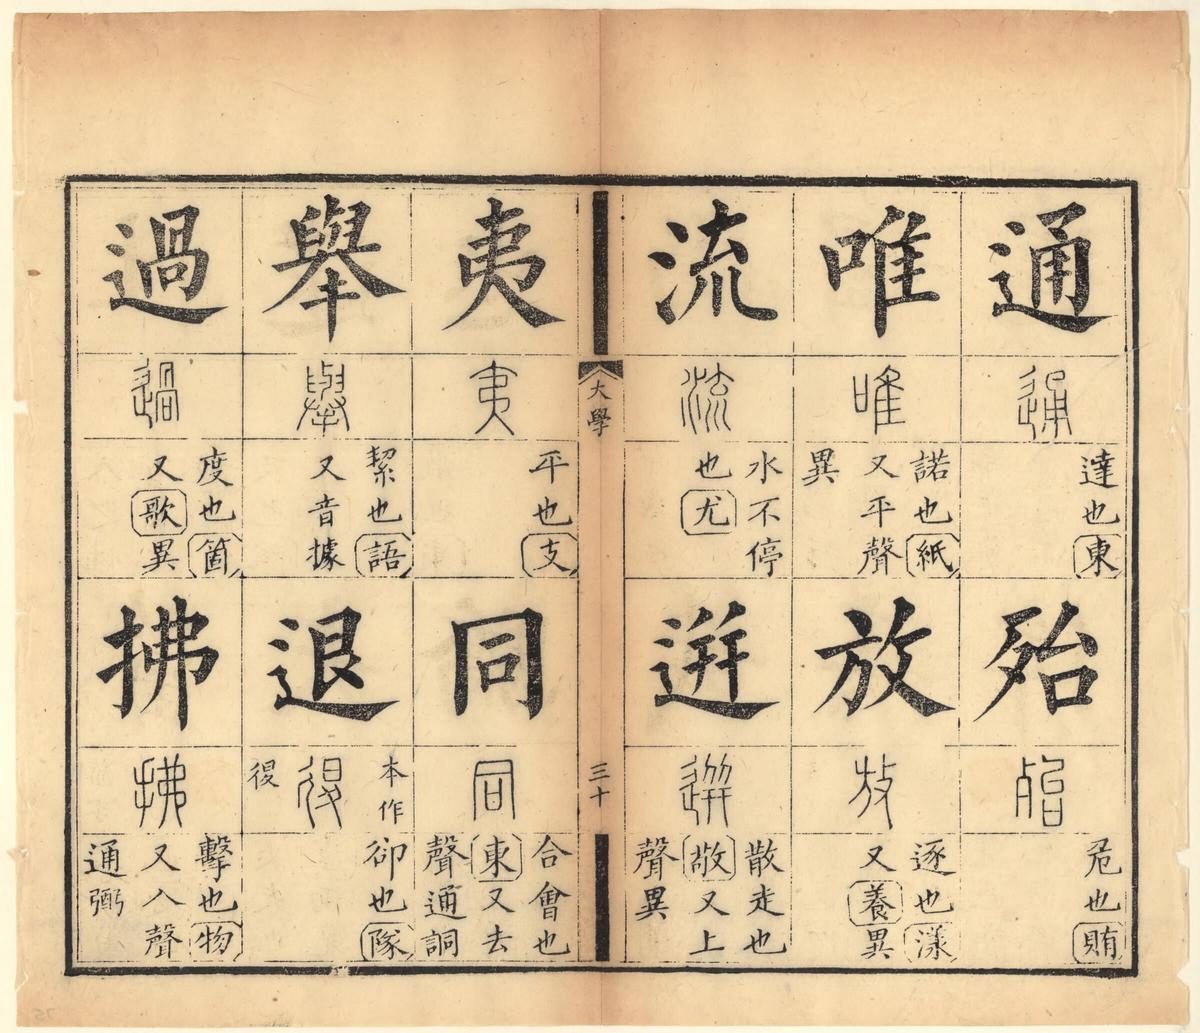 通
通
達也東
殆
殆
危也賄
唯
唯
諾也紙
又平聲
異
放
放
逐也漾
又養異
流
流
水不停
也尤
逬
逬
散走也
敬又上
聲異
大學
三十
夷
夷
平也支
同
同
合會也
東又去
聲通詷
舉
舉
絜也語
又音據
退
本作
㣟
㣟
卻也隊
過
過
度也箇
又歌異
拂
拂
擊也物
又入聲
通弼